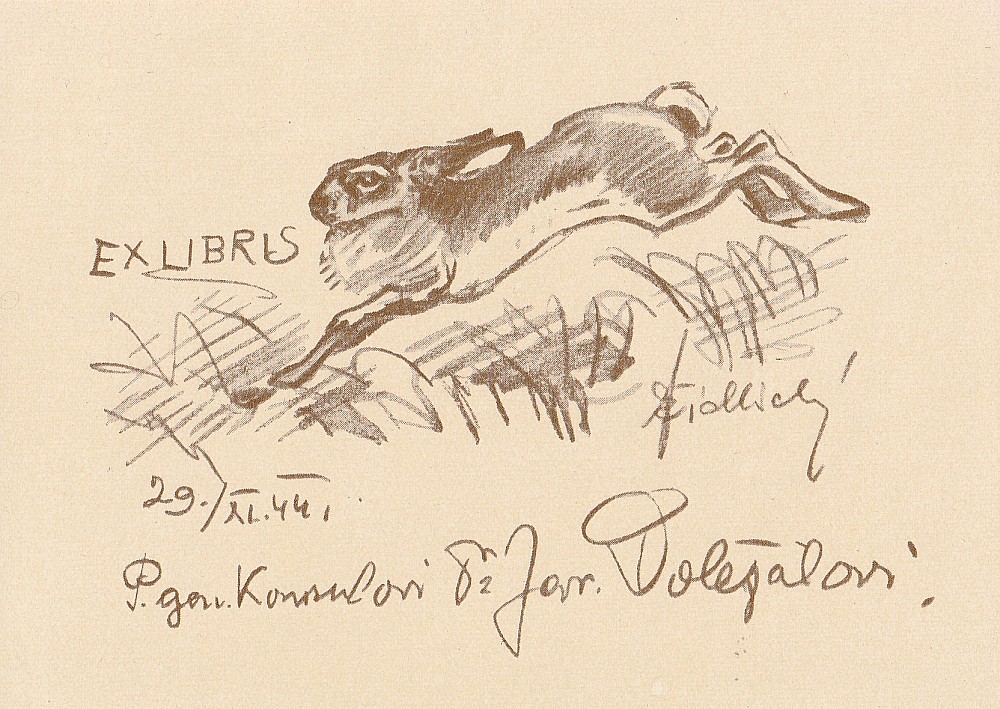 EX LIBRIS
Židlický
29./XI.44.
P. gen. Konsulovi Dr Jar. Doležalovi.